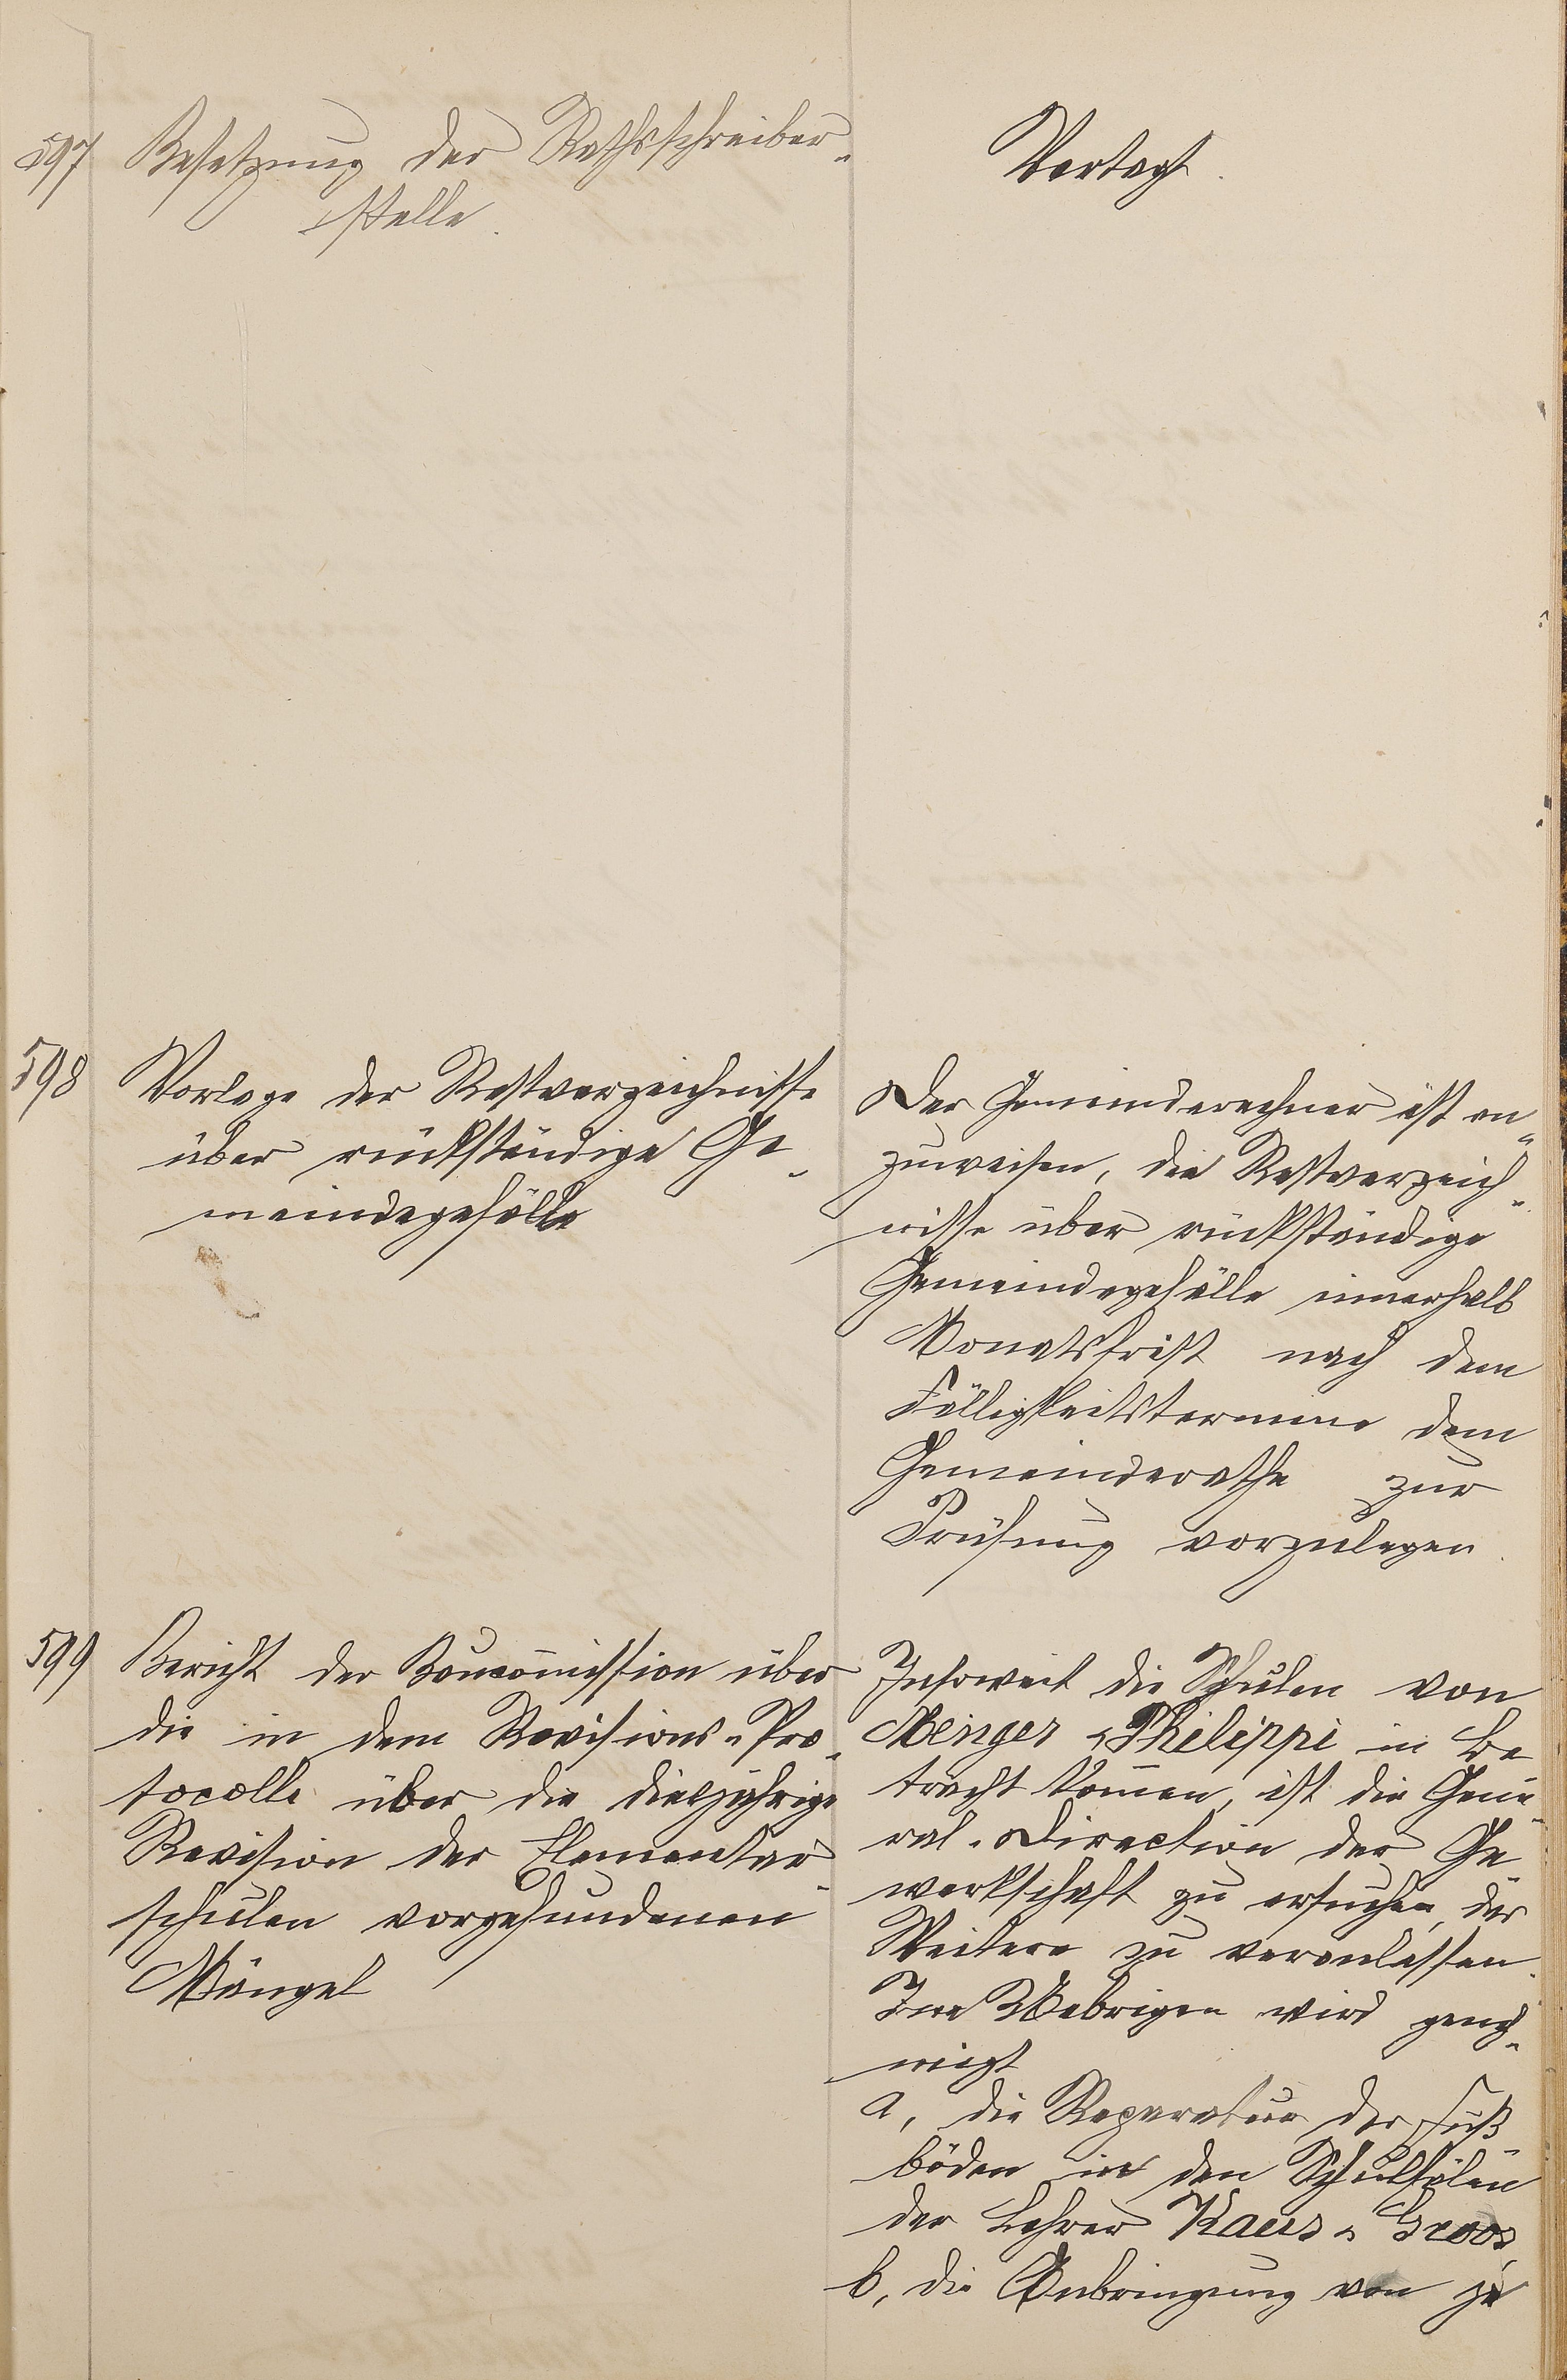 597 Besetzung der Rathsschreiber-
stelle.
Vertagt.
598 Vorlage der Restverzeichnisse
über rückständige Ge-
meindegefälle
Der Gemeinderechner ist an-
zuweisen, die Restverzeich-
nisse über rückständige
Gemeindegefälle innerhalb
Monatsfrist nach dem
Fälligkeitstermine dem
Gemeinderathe zur
Prüfung vorzulegen.
599 Bericht der Baucom̅ission über
die in dem Revisions-Pro-
tocolle über die diesjährige
Revision der Elementar-
schulen vorgefundenen
Mängel
Insoweit die Schulen von
Menger & Philippi in Be-
tracht kom̅en, ist die Gene-
ral-Direction der Ge-
werkschaft zu ersuchen, das
Weitere zu veranlassen.
Im Uebrigen wird geneh-
migt
a, die Reparatur der Fuß-
böden in den Schulsälen
der Lehrer Kaus & Groos,
b, die Anbringung von je